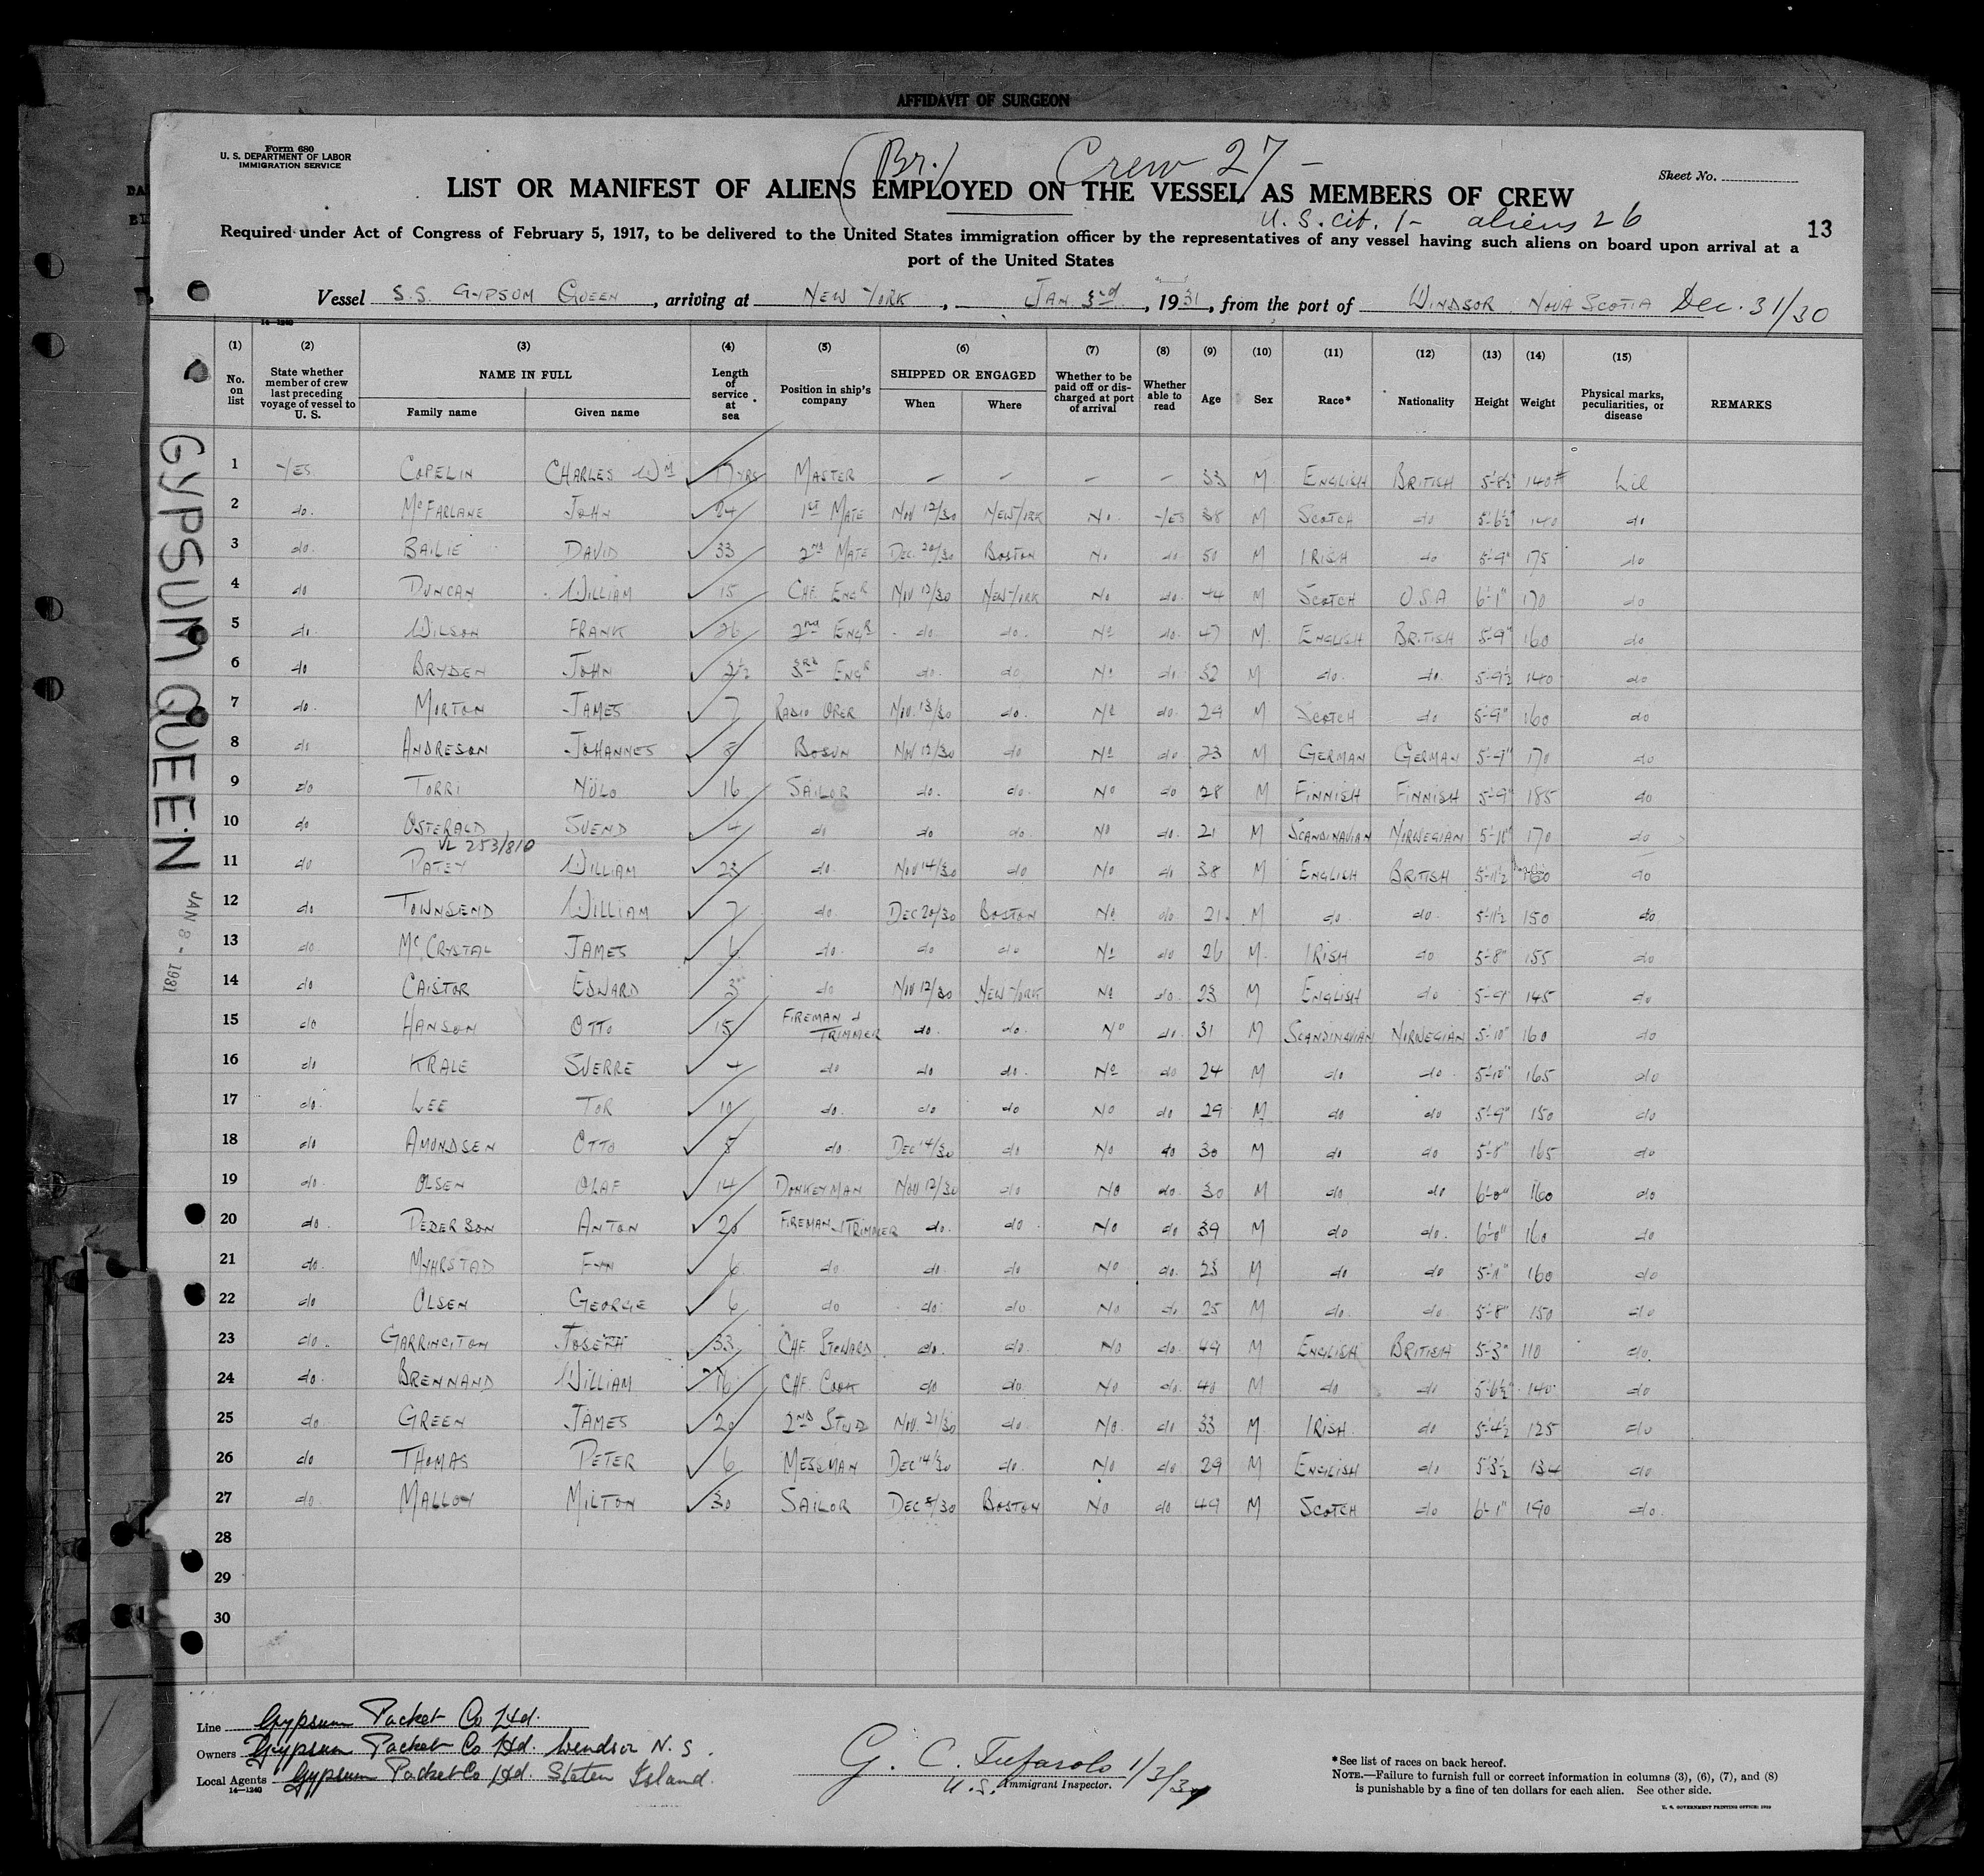 AFFIDAVIT OF SURGEON
Form 680
U. S. DEPARTMENT OF LABOR
IMMIGRATION SERVICE
(Br.) Crew 27 -
Sheet No.
LIST OR MANIFEST OF ALIENS EMPLOYED ON THE VESSEL AS MEMBERS OF CREW
U. S. cit. 1 - aliens 26
13
Required under Act of Congress of February 5, 1917, to be delivered to the United States immigration officer by the representatives of any vessel having such aliens on board upon arrival at a
port of the United States
Vessel S.S. GYPSUM QUEEN, arriving at NEW YORK, JAN. 3rd, 1931, from the port of WINDSOR NOVA SCOTIA Dec. 31/30
14-1240
(1) (2) (3) (4) (5) (6) (7) (8) (9) (10) (11) (12) (13) (14) (15)
No. on list | State whether member of crew last preceding voyage of vessel to U. S. | NAME IN FULL Family name Given name | Length of service at sea | Position in ship's company | SHIPPED OR ENGAGED When Where | Whether to be paid off or discharged at port of arrival | Whether able to read | Age | Sex | Race* | Nationality | Height | Weight | Physical marks, peculiarities, or disease | REMARKS
1 YES COPELIN CHARLES WM 17 YRS MASTER — — — — 33 M ENGLISH BRITISH 5'-8½ 140# Nil
2 do. McFARLANE JOHN 24 1ST MATE NOV 12/30 NEW YORK No. YES 38 M SCOTCH do 5'-6½" 140 do
3 do. BAILIE DAVID 33 2ND MATE DEC. 20/30 BOSTON No do. 50 M IRISH do 5'-9" 175 do
4 do DUNCAN WILLIAM 15 CHF. ENGR NOV 12/30 NEW YORK No do. 44 M SCOTCH U.S.A 6'-1" 170 do
5 do. WILSON FRANK 26 2nd ENGR do. do. No do. 47 M. ENGLISH BRITISH 5'-9" 160 do
6 do BRYDEN JOHN 3½ 3RD ENGR do. do No do 32 M do. do. 5'-9½ 140 do
7 do. MORTON JAMES 7 RADIO OPER NOV. 13/30 do. No do. 29 M SCOTCH do 5'-9" 160 do
8 do ANDRESON JOHANNES 8 BOSUN NOV 12/30 do No do 23 M GERMAN GERMAN 5'-9" 170 do
9 do TORRI NÜLO 16 SAILOR do. do. No do 28 M FINNISH FINNISH 5'-9" 185 do
10 do OSTERALD SVEND 4 do do do. No do. 21 M SCANDINAVIAN NORWEGIAN 5'-11" 170 do
VL 253/810
11 do PATEY WILLIAM 23 do. NOV 14/30 do No do 38 M ENGLISH BRITISH 5'-11½ 160 do
12 do TOWNSEND WILLIAM 7 do. DEC 20/30 BOSTON No do 21. M do. do. 5'-11½ 150 do
13 do. McCRYSTAL JAMES 6 do. do do No do 26 M. IRISH do 5'-8" 155 do
14 do CAISTOR EDWARD 3 do NOV 12/30 NEW YORK No do. 23 M ENGLISH do 5'-9" 145 do
15 do HANSON OTTO 15 FIREMAN & TRIMMER do. do. No do. 31 M SCANDINAVIAN NORWEGIAN 5'-10" 160 do
16 do KRALE SVERRE 4 do do do. No do 24 M do do 5'-10" 165 do
17 do. LEE TOR 10 do. do do No do 29 M do do 5'-9" 150 do
18 do AMONDSEN OTTO 8 do. DEC 14/30 do No do 30 M do do 5'-8" 165 do
19 do. OLSEN OLAF 14 DONKEYMAN NOV 12/30 do No do. 30 M do do 6'-0" 160 do
20 do. PEDERSON ANTON 20 FIREMAN & TRIMMER do. do No do 39 M do do. 6'-0" 160 do
21 do. MYHRSTAD FYN 6 do do. do No do. 23 M do do 160 do
22 do OLSEN GEORGE 6 do do. do No do 25 M do. do. 5'-8" 150 do
23 do. GARRINGTON JOSEPH 33 CHF. STEWARD do. do. No do. 49 M ENGLISH BRITISH 5'-3" 110 do.
24 do. BRENNAND WILLIAM 16 CHF. COOK do do. No do. 40 M do do 5'6½" 140 do
25 do. GREEN JAMES 20 2ND STWD NOV. 21/30 do. No. do 33 M. IRISH do 5'-4½ 125 do
26 do THOMAS PETER 6 MESSMAN DEC 14/30 do. No do 29 M ENGLISH do 5'3½ 134 do
27 do. MALLOY MILTON 30 SAILOR DEC 8/30 BOSTON No do 49 M SCOTCH do 6'-1" 190 do.
28
29
30
GYPSUM QUEEN
JAN 8 - 1931
Line Gypsum Packet Co Ltd.
Owners Gypsum Packet Co Ltd. Windsor N. S.
Local Agents Gypsum Packet Co Ltd. Staten Island.
14-1240
G. C. Tufarolo 1/3/31
U.S. Immigrant Inspector.
*See list of races on back hereof.
NOTE.—Failure to furnish full or correct information in columns (3), (6), (7), and (8)
is punishable by a fine of ten dollars for each alien. See other side.
U. S. GOVERNMENT PRINTING OFFICE: 1929